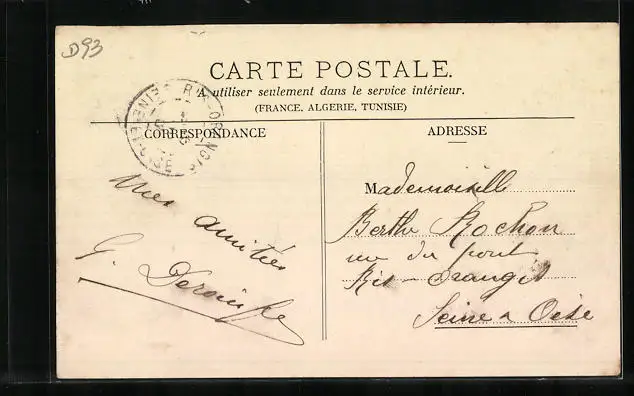 D93
CARTE POSTALE.
A utiliser seulement dans le service intérieur.
(FRANCE, ALGERIE, TUNISIE)
CORRESPONDANCE
ADRESSE
Mes amitiés
G.
Mademoiselle
Berthe Rochon
rue du pont
Ris-Orangis
Seine & Oise